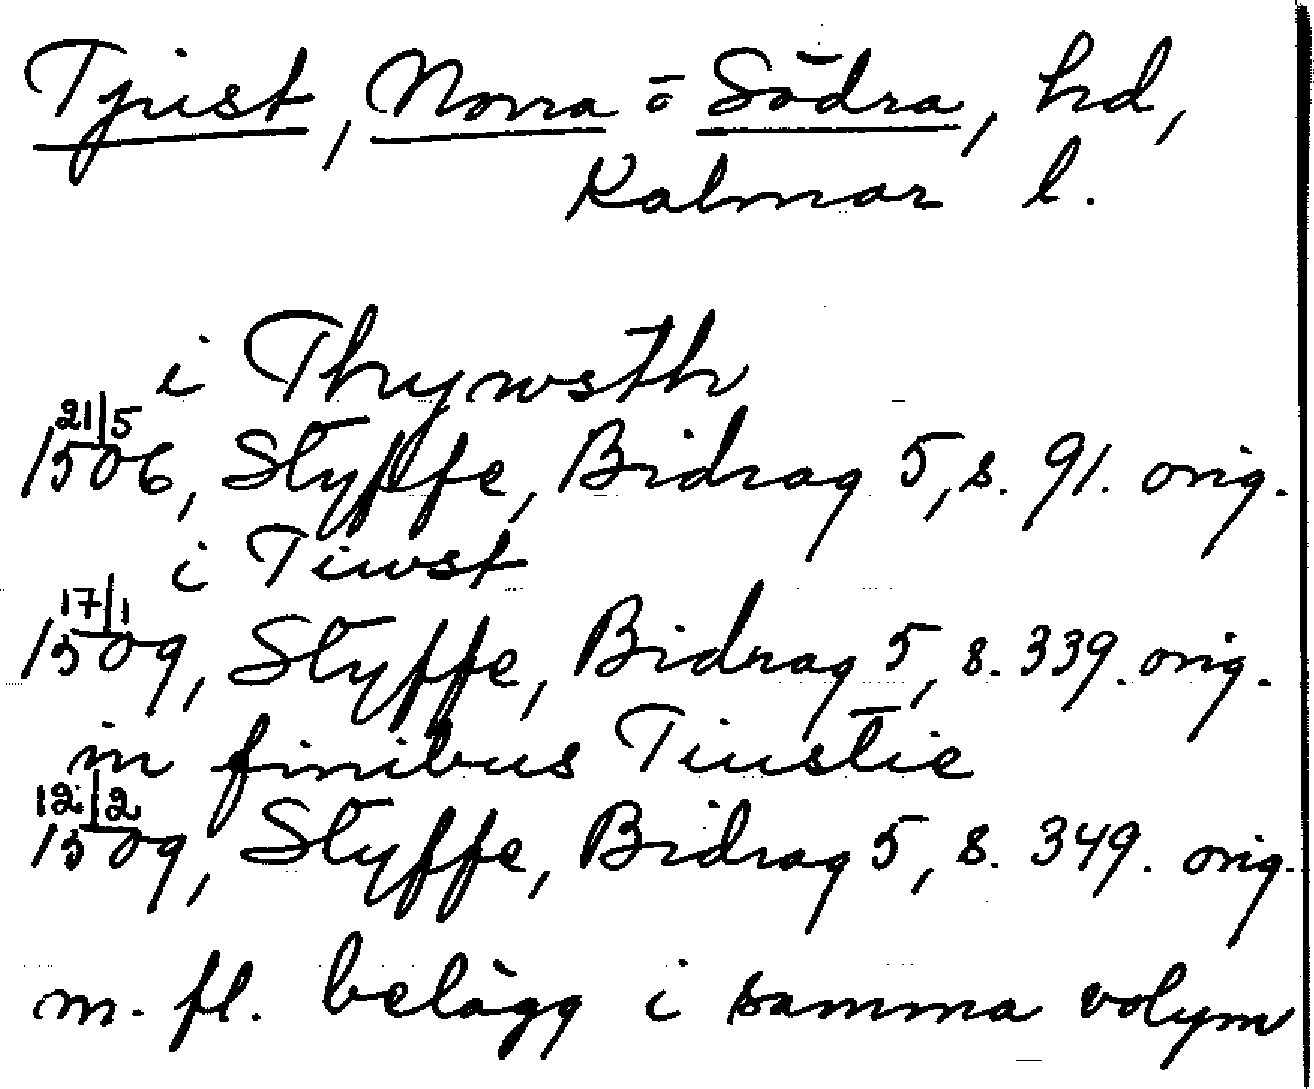 Tjust, Norra o Södra, hd,
Kalmar l.
i Thywsth
21/5
1506, Styffe, Bidrag 5, s. 91. orig.
i Tiwst
17/1
1509, Styffe, Bidrag 5, s. 339. orig.
in finibus Tiustie
12/2
1509, Styffe, Bidrag 5, s. 349. orig.
m. fl. belägg i samma volym